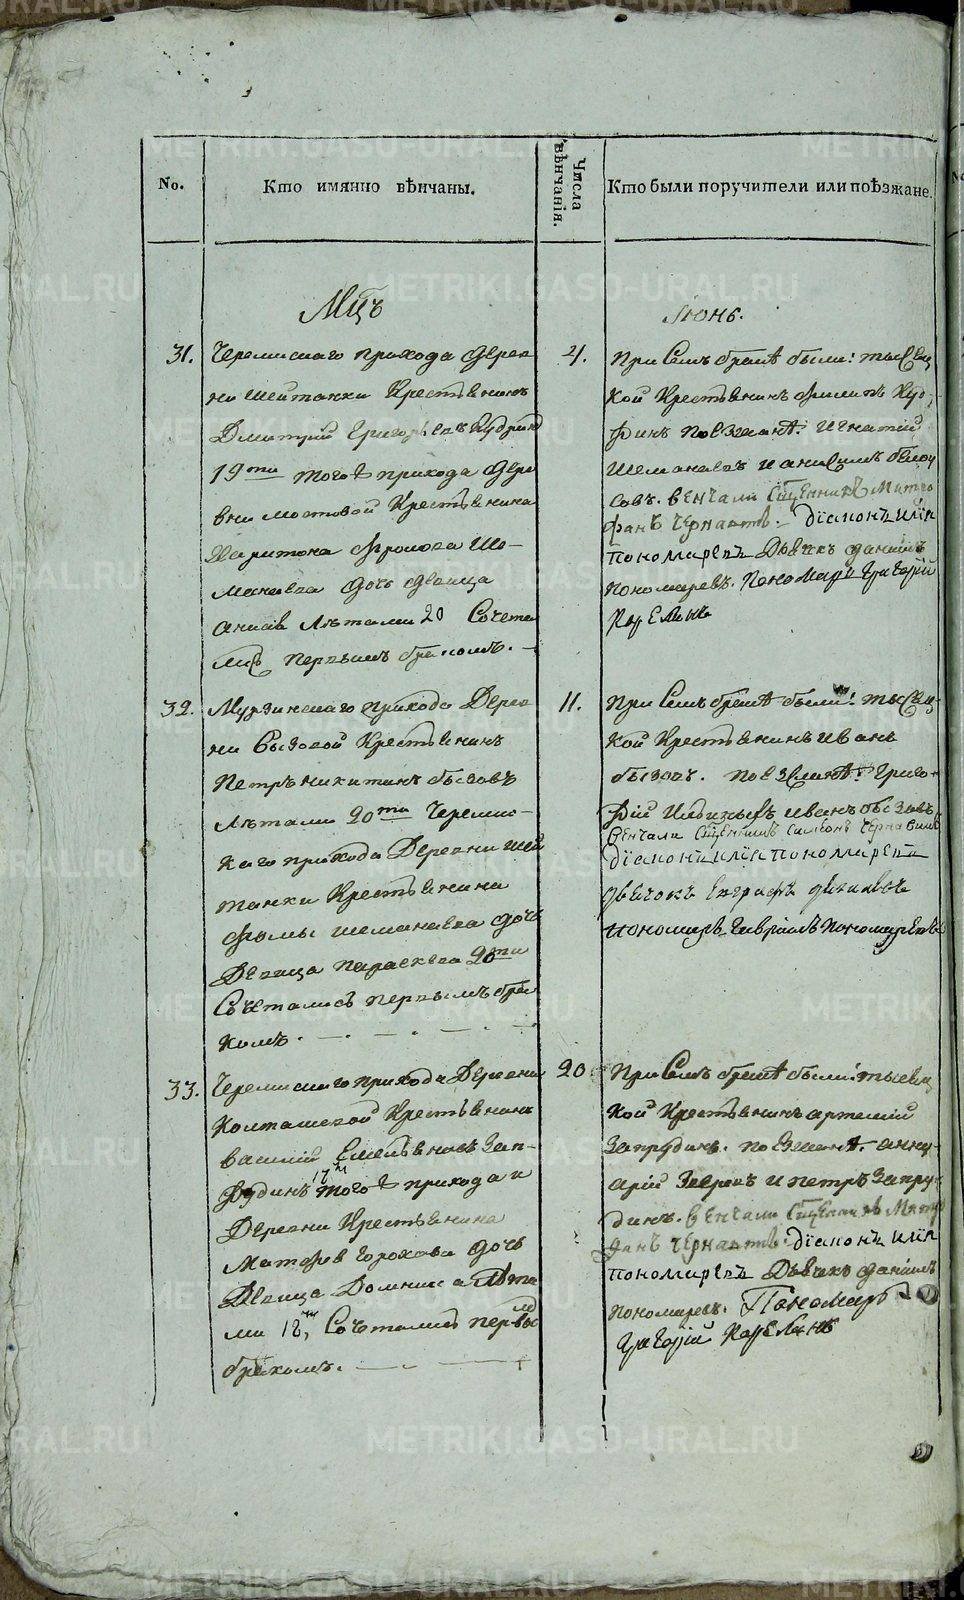 No.
Кто имянно вѣнчаны.
Числа вѣнчанія.
Кто были поручители или поѣзжане.
Мцъ
Июнь.
31.
Черемискаго прихода дерев
ни Шейтанки Крестьянинъ
Дмитрий Григорьевъ Кудрин
19ти того прихода дере
вни Мостовой Крестьянина
Харитона Фролова Ше-
манаева дочь девица
лѣтами 20 Сочета
лись первымъ бракомъ.
4.
При семъ бракѣ были: тысяц
кой Крестьянинъ Филипъ Куд-
ринъ поезжанѣ: Игнатий
Шеманаевъ и
венчали Сщенникъ Митро
фанъ Чернавинъ. Діаконъ Илія
Пономаревъ Дьячкъ Данилъ
Пономаревъ. Пономарь Григорій
Карелинъ
32.
Мурзинскаго прихода Дерев
ни Сизовой Крестьянинъ
Петръ Никитинъ
лѣтами 20ти Черемис-
каго прихода Деревни Шей
танки Крестьянина
Фомы Шеманаева дочь
Девица Параскева 20ти
Сочетались первымъ бра
комъ.
11.
При семъ бракѣ были: тысяц-
кой Крестьянинъ Иванъ
поезжанѣ: Григо-
рій Иванъ
венчали Сщенникъ Симеонъ Чернавинъ
Діаконъ Илія Пономаревъ
дьячокъ Евграфъ
пономарь Гавріилъ Пономаревъ
33.
Черемискаго прихода Деревни
Колташевой Крестьянинъ
Василий Емельяновъ Зап-
рудинъ 17 того прихода и
Деревни Крестьянина
Матфея Горохова дочь
Девица Домника лѣта
ми 18, Сочетались первым
бракомъ.
20
При семъ бракѣ были: тысяц
кой Крестьянинъ Артемий
Запрудинъ. поезжанѣ.
Зверевъ и Петръ Запру
динъ. венчали Сщенникъ Митро
фанъ Чернавинъ. Діаконъ Илія
Пономаревъ Дьячкъ Данилъ
Пономаревъ. Пономарь
Григорій Карелинъ
METRIKI.GASO-URAL.RU